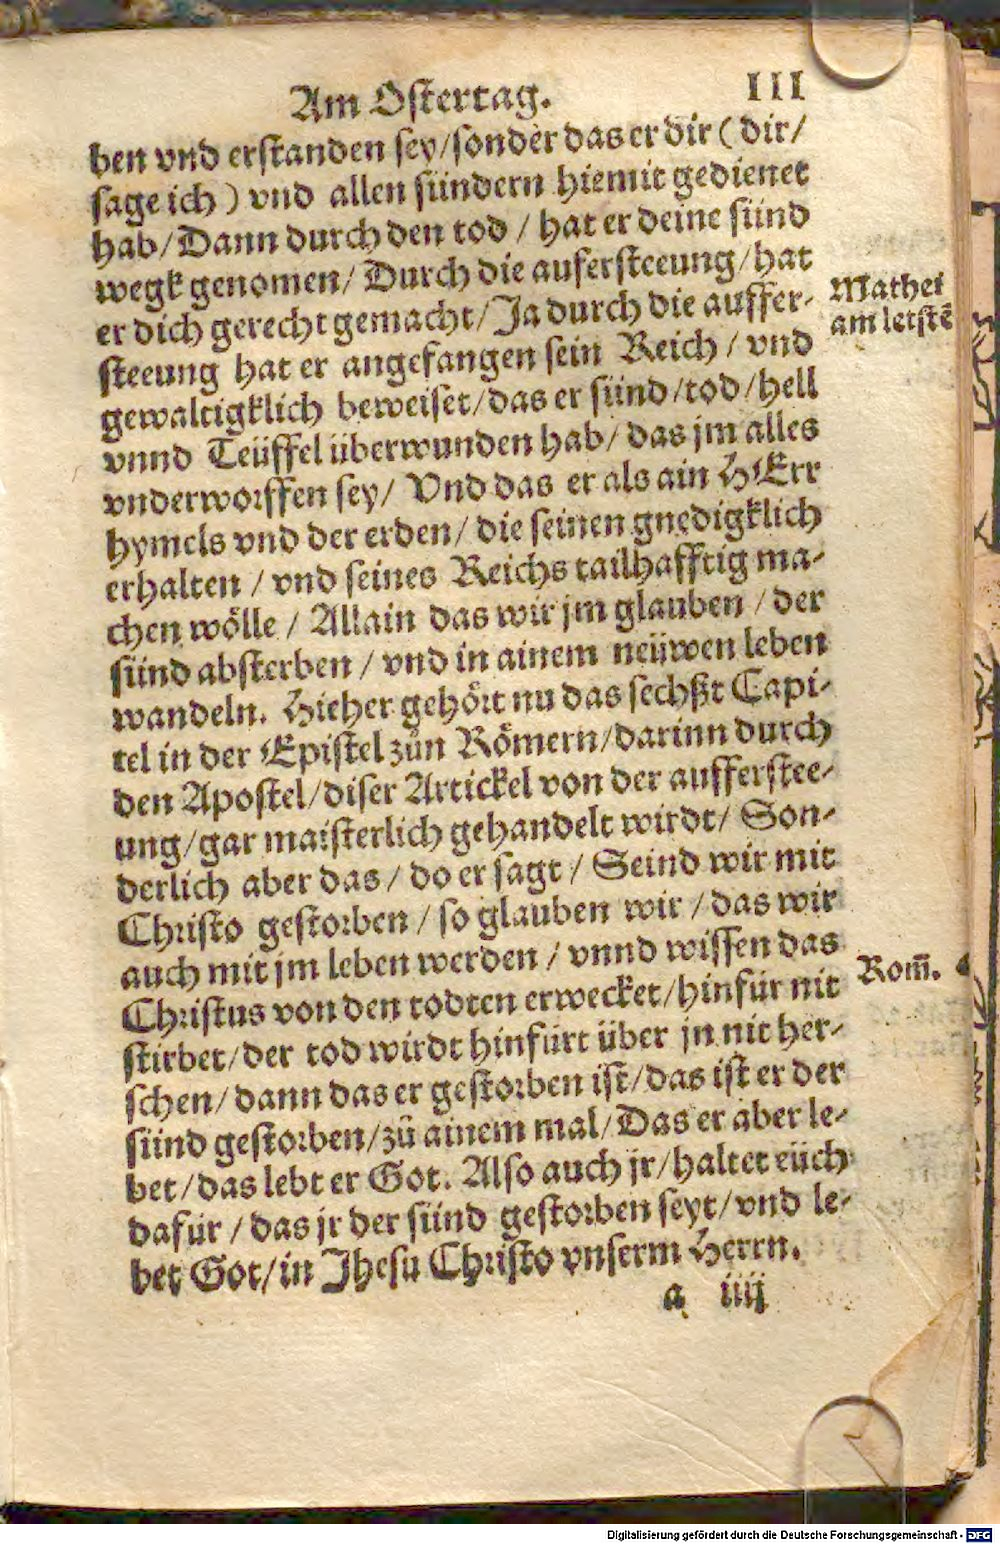 Am Ostertag. III
ben vnd erstanden sey/sonder das er dir ( dir/
sage ich ) vnd allen sündern hiemit gedienet
hab/Dann durch den tod / hat er deine sünd
wegk genomen/ Durch die aufersteeung/hat
er dich gerecht gemacht/Ja durch die auffer-
steeung hat er angefangen sein Reich / vnd
gewaltigklich beweiset/das er sünd/tod/hell
vnnd Teüffel überwunden hab/ das jm alles
vnderworffen sey/ Vnd das er als ain HErr
hymels vnd der erden/ die seinen gnedigklich
erhalten / vnd seines Reichs tailhafftig ma-
chen wölle / Allain das wir jm glauben / der
sünd absterben / vnd in ainem neüwen leben
wandeln. Hieher gehört nu das sechßt Capi-
tel in der Epistel zůn Römern/darinn durch
den Apostel/diser Artickel von der aufferstee-
ung/gar maisterlich gehandelt wirdt/ Son-
derlich aber das / do er sagt / Seind wir mit
Christo gestorben / so glauben wir / das wir
auch mit jm leben werden / vnnd wissen das
Christus von den todten erwecket/hinfür nit
stirbet/der tod wirdt hinfürt über jn nit her-
schen/dann das er gestorben ist/das ist er der
sünd gestorben/zů ainem mal/Das er aber le-
bet/das lebt er Got. Also auch jr/haltet eüch
dafür / das jr der sünd gestorben seyt/vnd le-
bet Got/in Jhesu Christo vnserm Herrn.
a iiij
Mathei
am letstē
Rom̄.
Digitalisierung gefördert durch die Deutsche Forschungsgemeinschaft - DFG